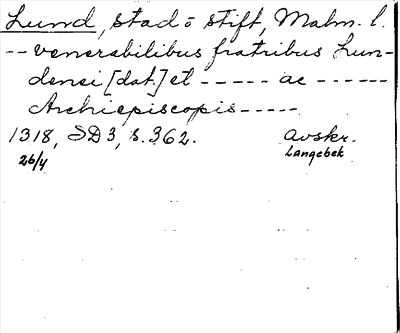 Lund, stad o stift, Malm. l.
-- venerabilibus fratribus Lun-
densi [dat.] et ----- ac ------
Archiepiscopis -----
1318, SD3, s. 362. Avskr.
26/4 Langebek